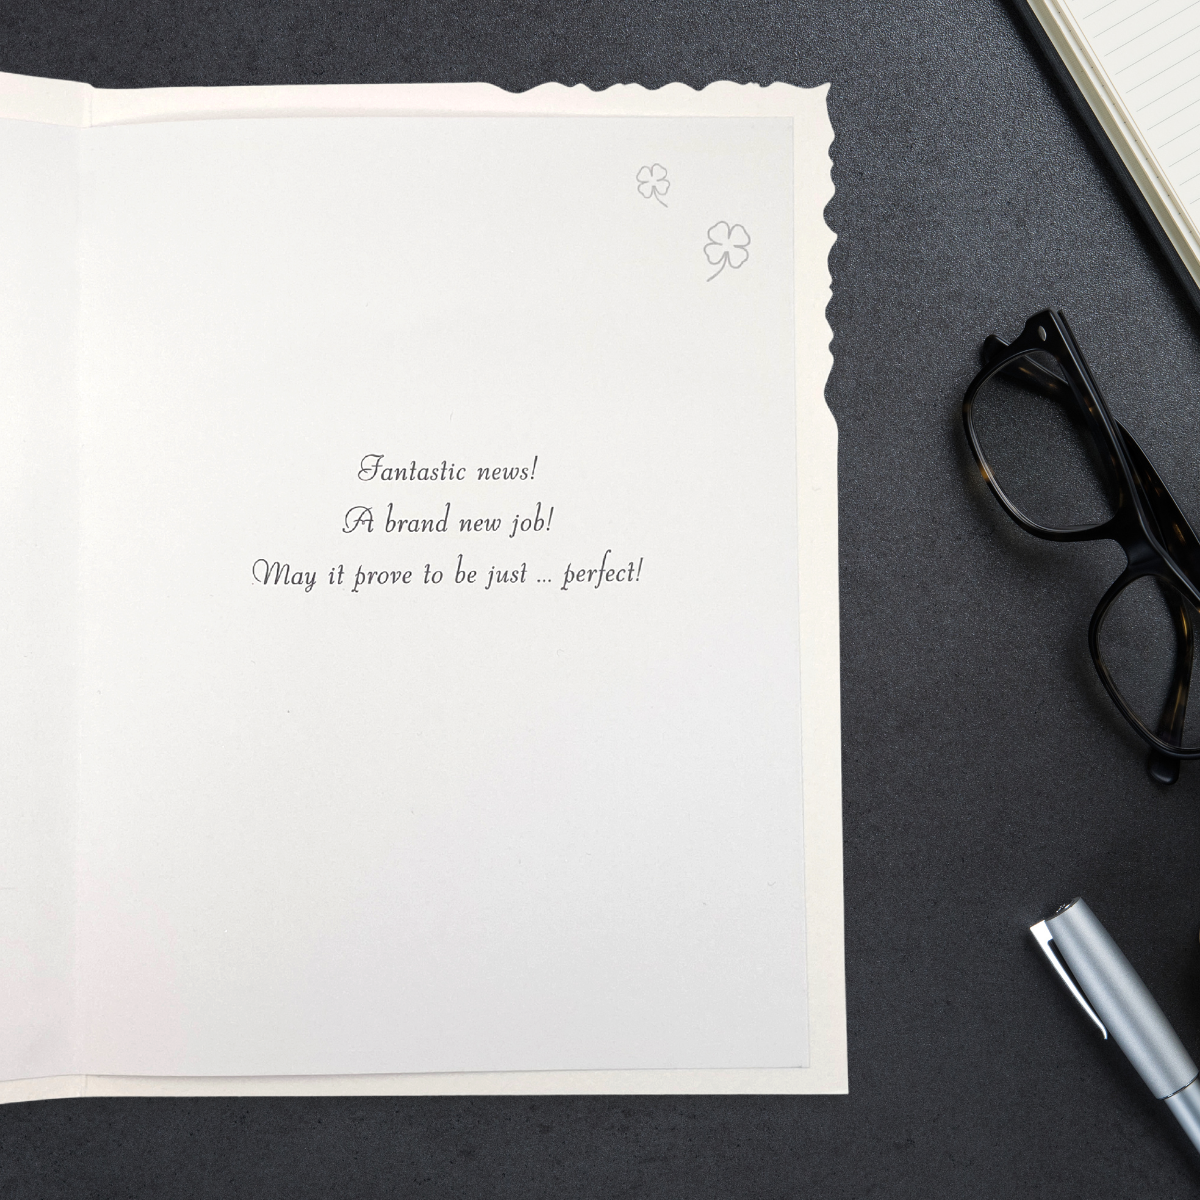 Fantastic news!
A brand new job!
May it prove to be just ... perfect!